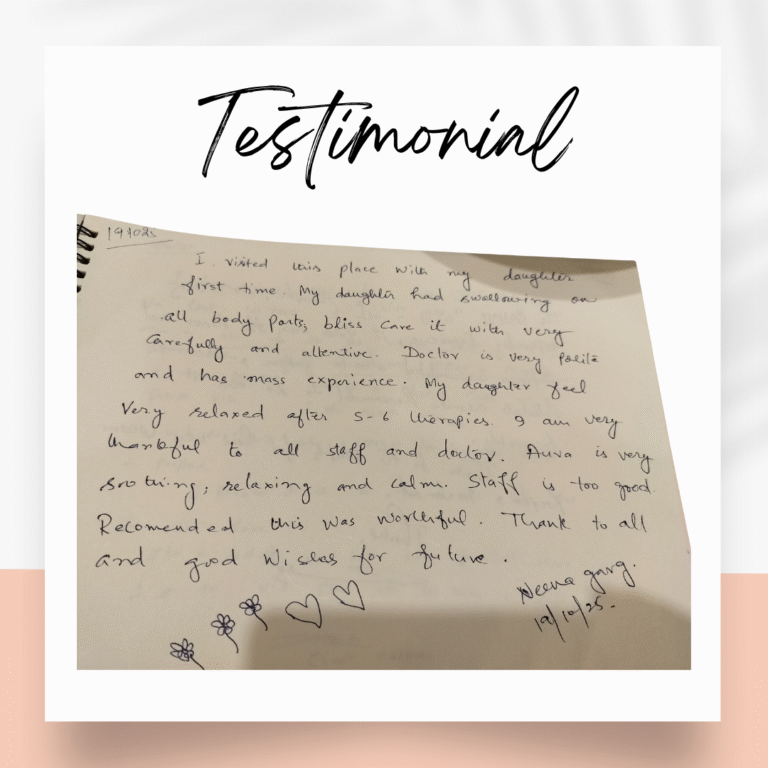 Testimonial
I visited this place with my daughter
first time. My daughter had swellowing on
all body parts, bliss care it with very
carefully and attentive. Doctor is very polite
and has mass experience. My daughter feel
very relaxed after 5-6 therapies. I am very
thankful to all staff and doctor. Auva is very
soothing, relaxing and calm. Staff is too good
Recomended this was worthful. Thank to all
and good wishes for future.
garg.
19/10/25.